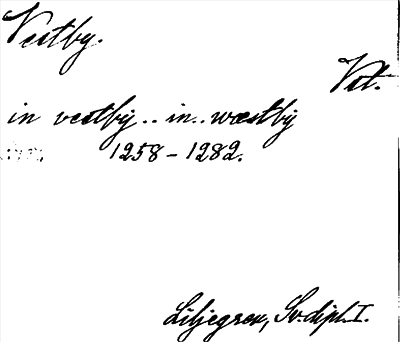 Vestby.
Vst.
in vestbij.. in.. wæstbij
1258-1282.
Liljegren, Sv. dipl. I.